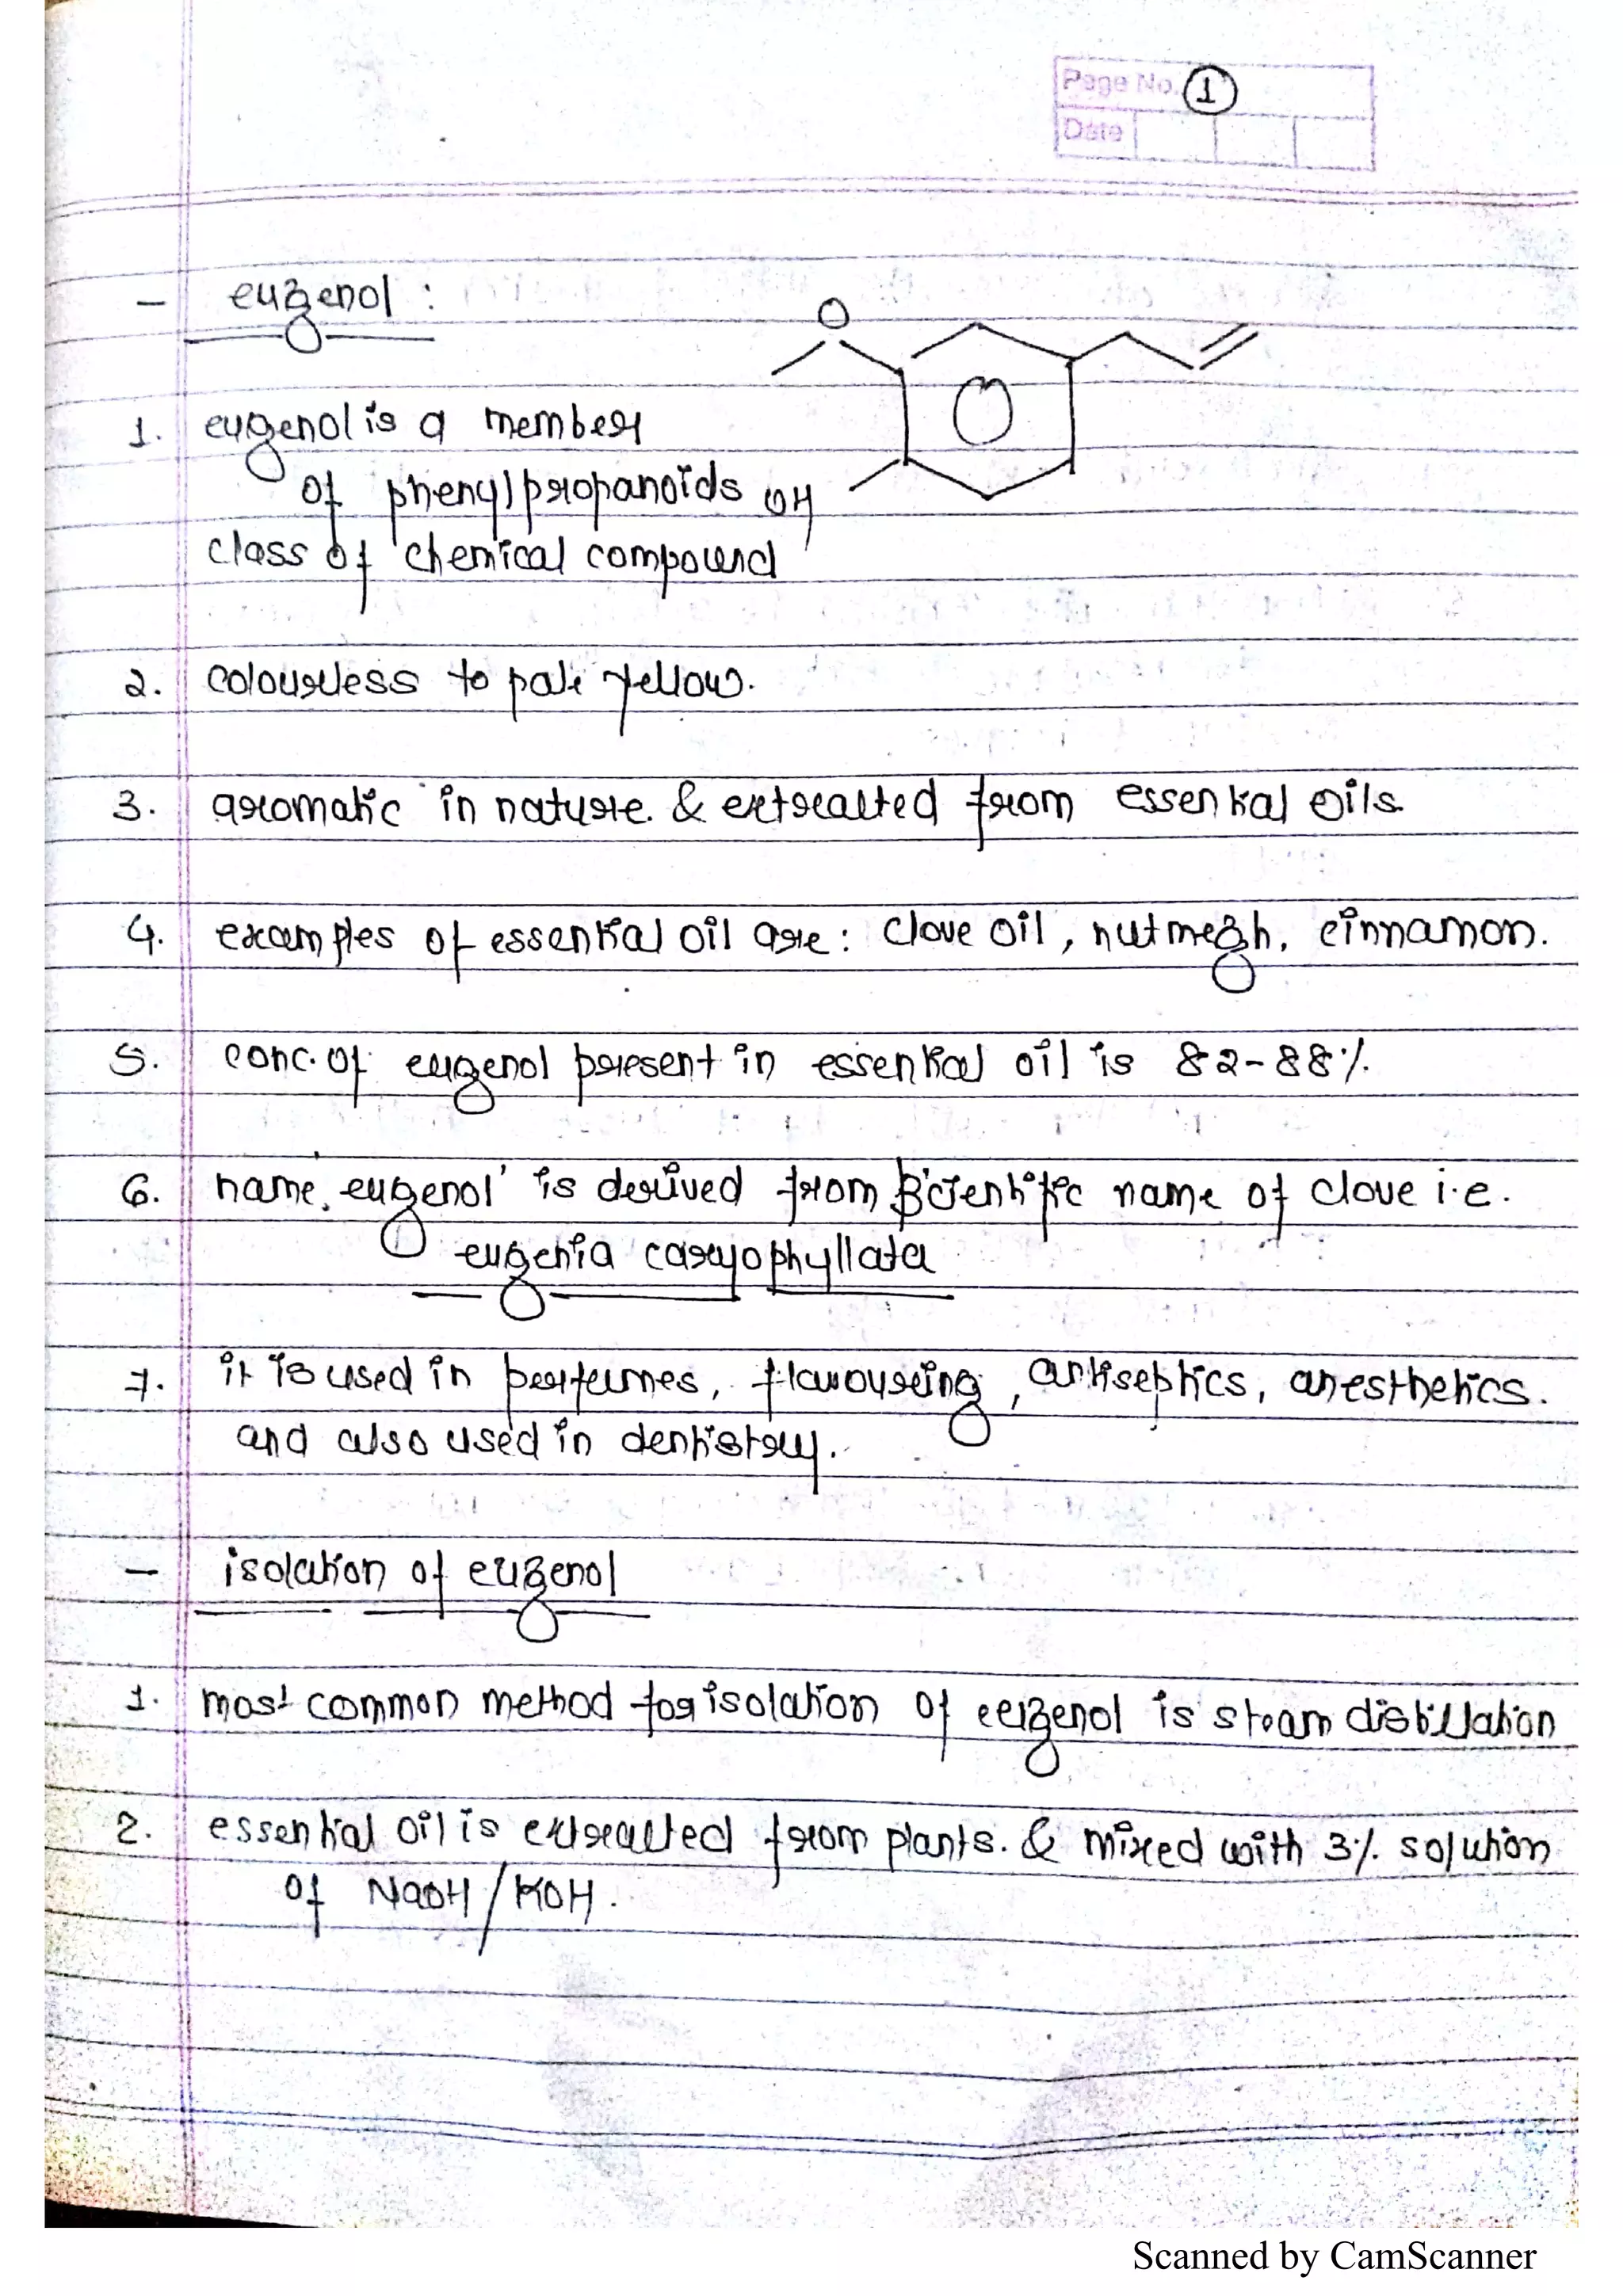 Page No. 1
Date
- eugenol :
O
1. eugenol is a member
of phenylpropanoids
OH
class of chemical compound
2. colourless to pale yellow.
3. aromatic in nature. & extracted from essential oils
4. examples of essential oil are : clove oil, nutmegh, cinnamon.
5. conc. of eugenol present in essential oil is 82-88%.
6. name, eugenol' is derived from scientific name of clove i.e.
eugenia caryophyllata
7. it is used in perfumes, flavouring, antiseptics, anesthetics.
and also used in dentistry.
- isolation of eugenol
1. most common method for isolation of eugenol is steam distillation
2. essential oil is extracted from plants. & mixed with 3% solution
of NaOH / KOH.
Scanned by CamScanner